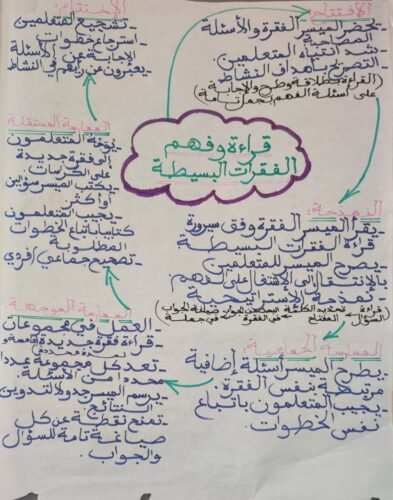 قراءة وفهم
الفقرات البسيطة
الافتتاح:
-يحضر الميسر الفقرة والأسئلة
المصاحبة
-شد انتباه المتعلمين
-التصريح بأهداف النشاط
(القراءة بطلاقة وطرح والإجابة
على أسئلة الفهم بجمل تامة)
النمذجة:
-يقرأ الميسر الفقرة وفق سيرورة
قراءة الفقرات البسيطة
-يصرح الميسر للمتعلمين
بالانتقال إلى الاشتغال على الفهم
-نمذجة الاستراتيجية
(قراءة السؤال
تحديد الكلمة المفتاح
البحث عن الجواب في الفقرة
صياغة الجواب في جملة)
الممارسة الجماعية:
-يطرح الميسر أسئلة إضافية
مرتبطة بنفس الفقرة
-يجيب المتعلمون باتباع
نفس الخطوات.
الممارسة الموجهة
-العمل في مجموعات
-قراءة فقرة جديدة
-تعد كل مجموعة عددا
محددا من الأسئلة.
-يرسم الميسر جدولا لتدوين
النتائج.
-تمنح نقطة عن كل
صياغة تامة للسؤال
والجواب.
الممارسة المستقلة
-يوجه المتعلمون
إلى فقرة جديدة
على الكراسات
-يكتب الميسر سؤالين
أو أكثر
-يجيب المتعلمون
كتابيا باتباع الخطوات
المطلوبة
-تصحيح جماعي/فردي
الاختتام:
-تشجيع المتعلمين
-استرجاع خطوات
الإجابة عن الأسئلة
-يعبرون عن رأيهم في النشاط